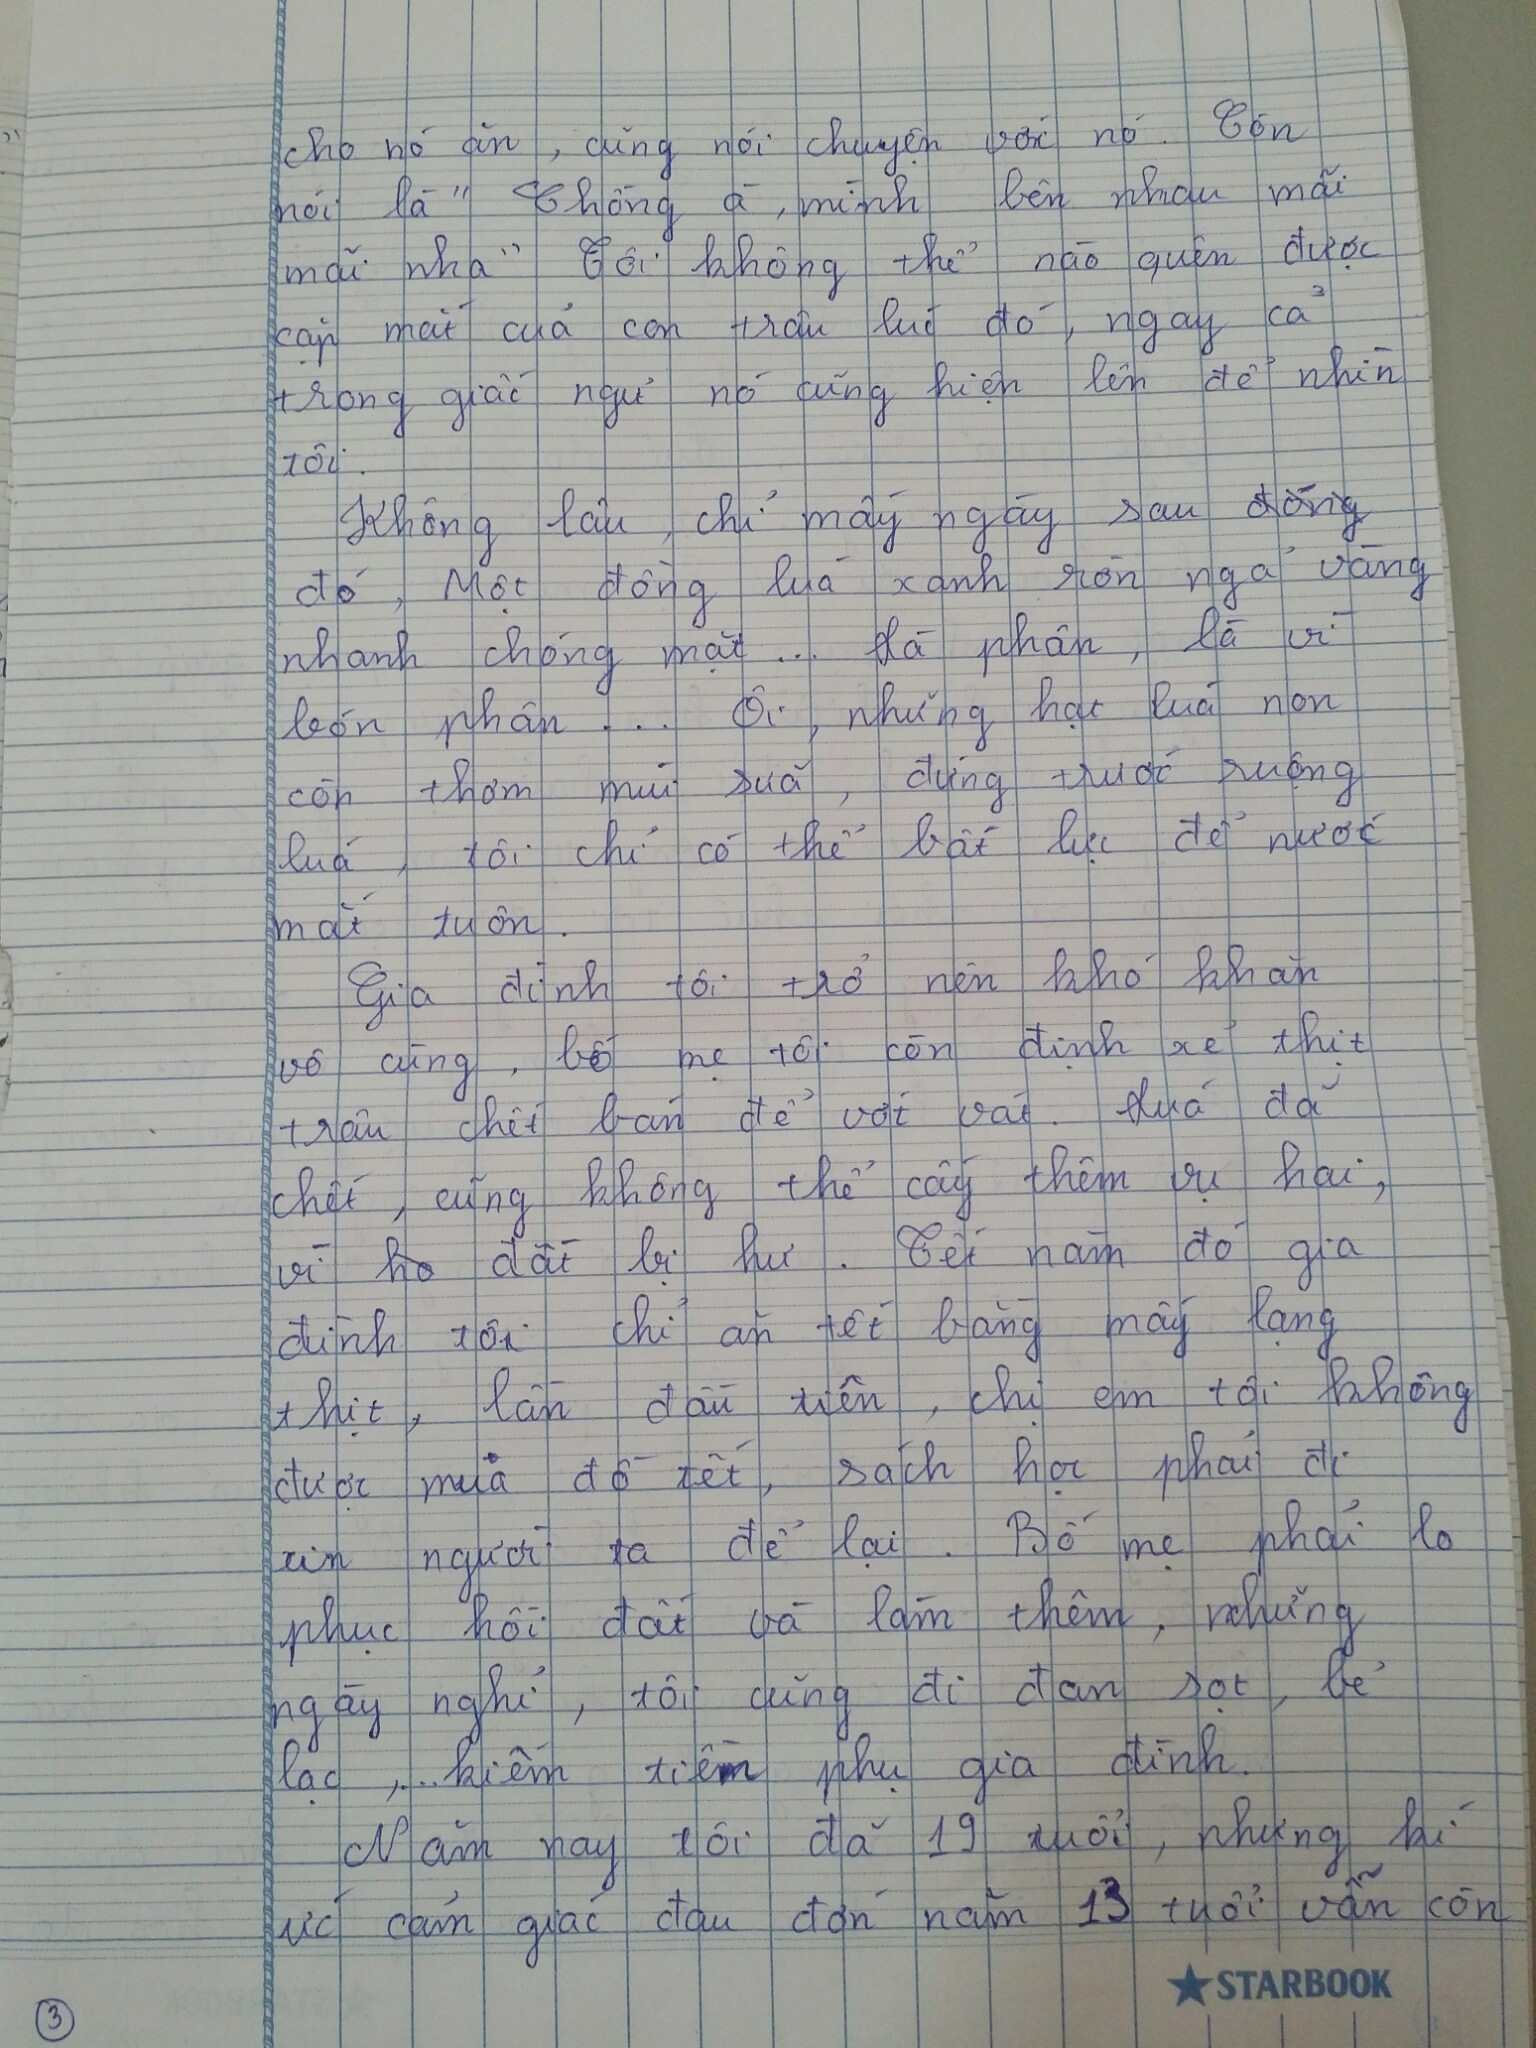 cho nó ăn, cũng nói chuyện với nó. Còn
nói là " Chồng à, mình bên nhau mãi
mãi nha" Tôi không thể nào quên được
cặp mắt của con trâu lúc đó, ngay cả
trong giấc ngủ nó cũng hiện lên để nhìn
tôi.
Không lâu, chỉ mấy ngày sau đồng
đó, Một đồng lúa xanh rờn ngả vàng
nhanh chóng mặt... là phân, là vì
bón phân... Ôi, những hạt lúa non
còn thơm mùi sữa, đứng trước ruộng
lúa, tôi chỉ có thể bất lực để nước
mắt tuôn.
Gia đình tôi trở nên khó khăn
vô cùng, bố mẹ tôi còn định xẻ thịt
trâu chết bán để vớt vát. Lúa đã
chết, cũng không thể cấy thêm vụ hai,
vì đất bị hư. Tết năm đó gia
đình tôi chỉ ăn tết bằng mấy lạng
thịt, lần đầu tiên, chị em tôi không
được mua đồ tết, sách học phải đi
xin người ta để lại. Bố mẹ phải lo
phục hồi đất và làm thêm, những
ngày nghỉ, tôi cũng đi đan sọt, bẻ
lạc,... kiếm tiền phụ gia đình.
Năm nay tôi đã 19 tuổi, nhưng kí
ức cảm giác đau đớn năm 13 tuổi vẫn còn
STARBOOK
3